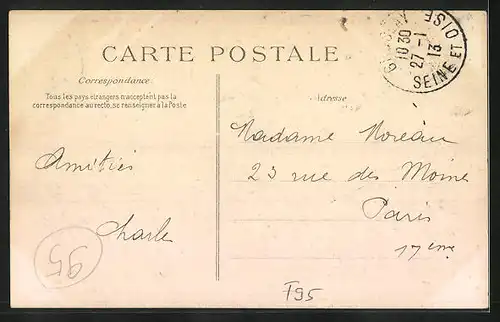 CARTE POSTALE
Correspondance
Tous les pays étrangers n'acceptent pas la
correspondance au recto, se renseigner à la Poste
Adresse
10 30
27 - 1
13
SEINE ET OISE
Amitiés
Charles
Madame Moreau
23 rue des Moines
Paris
17ème
95
F95